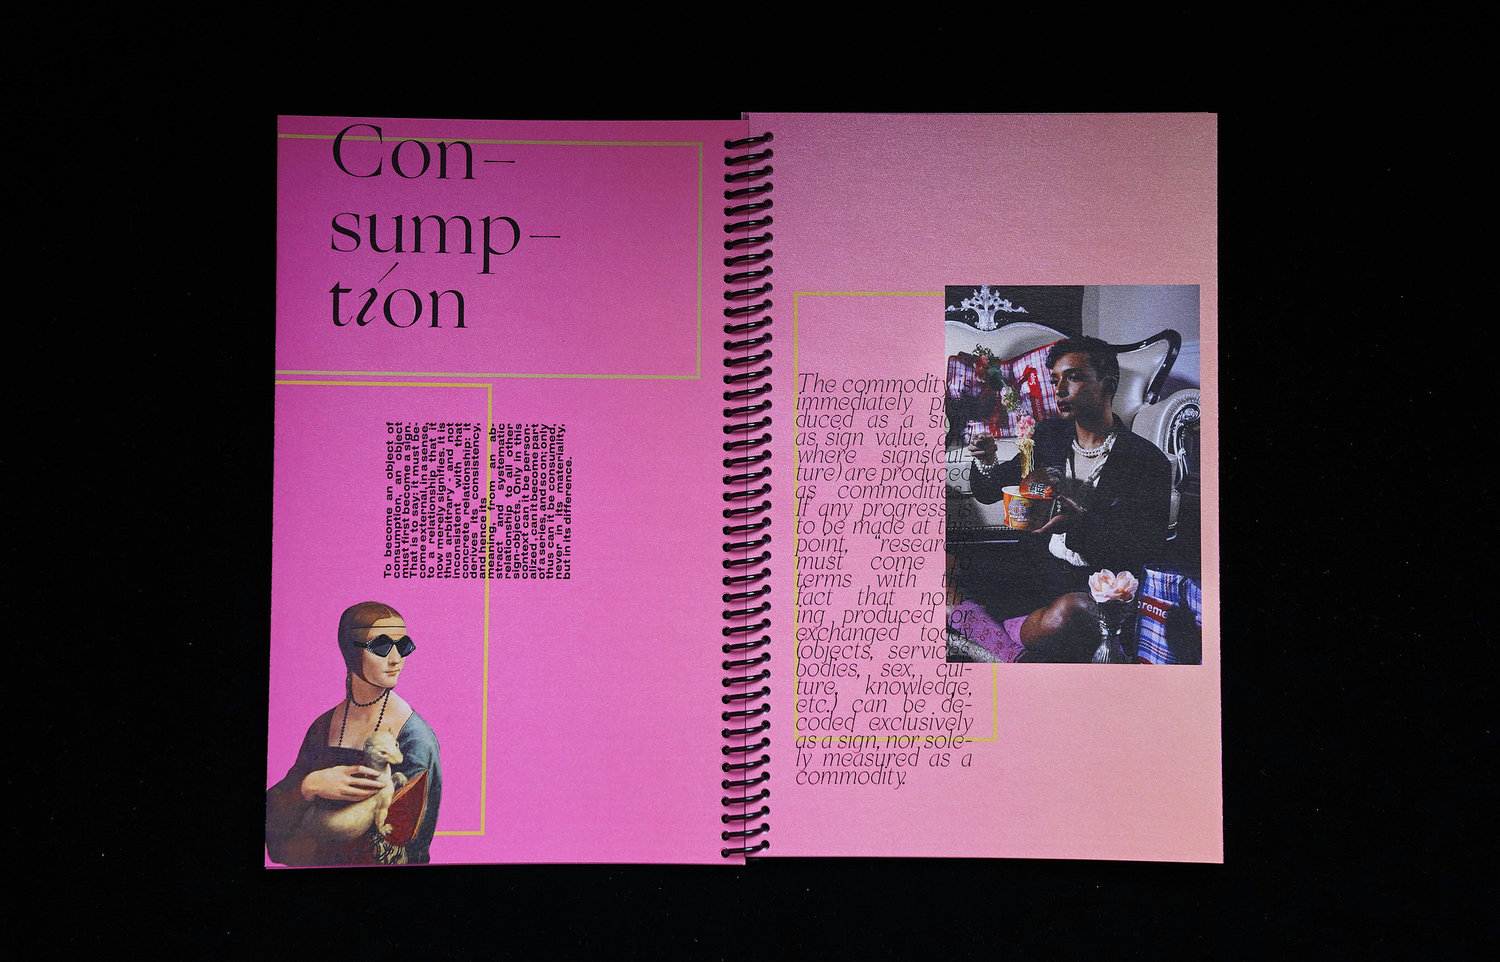 Con–
sump–
tion
To become an object of
consumption, an object
must first become a sign.
That is to say: it must be-
come external, in a sense,
to a relationship that it
now merely signifies. It is
thus arbitrary - and not
inconsistent with that
concrete relationship: it
derives its consistency,
and hence its
meaning, from an ab-
stract and systematic
relationship to all other
sign-objects. Only in this
context can it be person-
alized, can it become part
of a series, and so on; only
thus can it be consumed,
never in its materiality,
but in its difference.
The commodity is
immediately pro-
duced as a sign,
as sign value, and
where signs(cul-
ture) are produced
as commodities.
If any progress is
to be made at this
point, "research"
must come to
terms with the
fact that noth-
ing produced or
exchanged today
(objects, services,
bodies, sex, cul-
ture, knowledge,
etc.) can be de-
coded exclusively
as a sign, nor sole-
ly measured as a
commodity.
preme